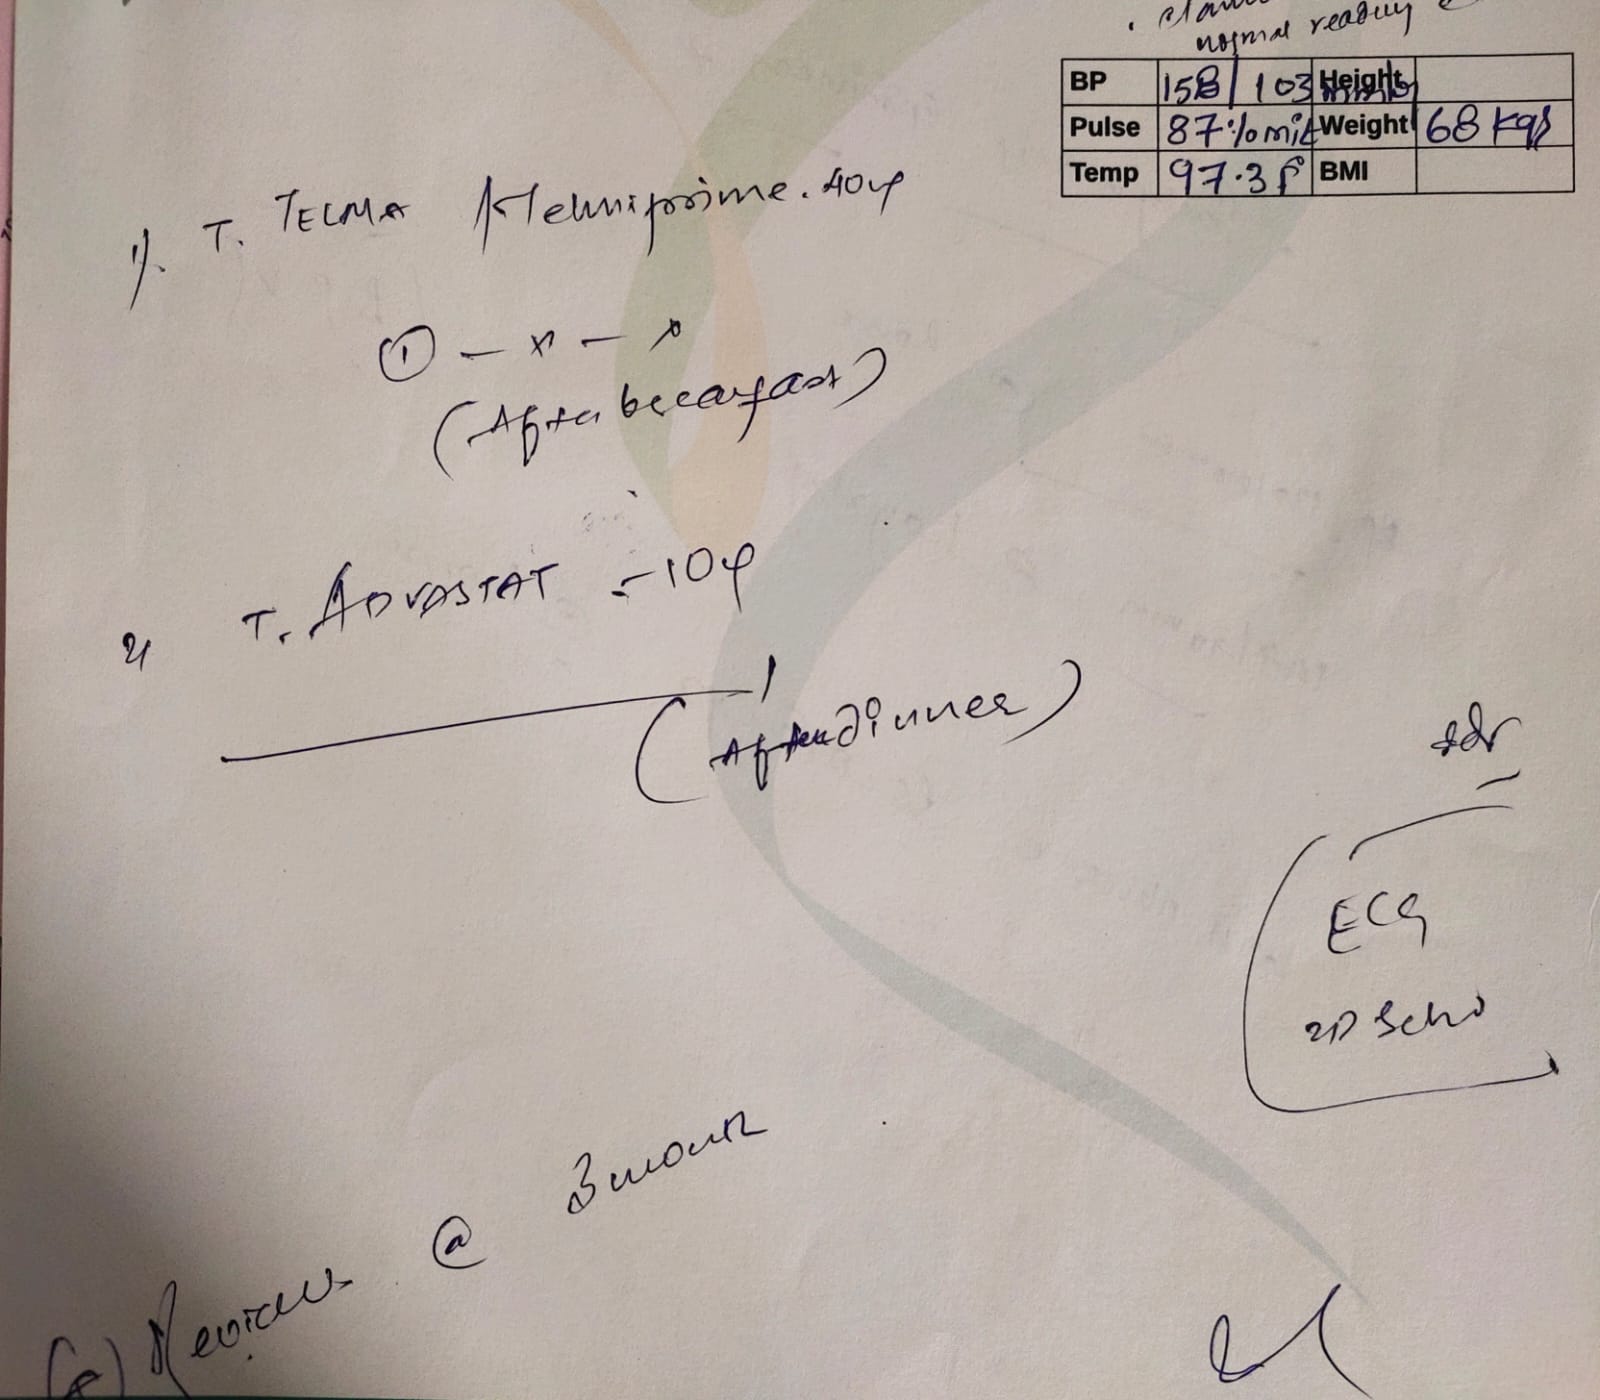 normal reading
BP 158/103 Height
Pulse 87%mit Weight 68 kgs
Temp 97.3 F BMI
1). T. TELMA
① - x - x
(After breakfast)
2) T. ADVASTAT - 10
1
(After dinner)
adv
ECG
2D Echo
Review @ 3 month